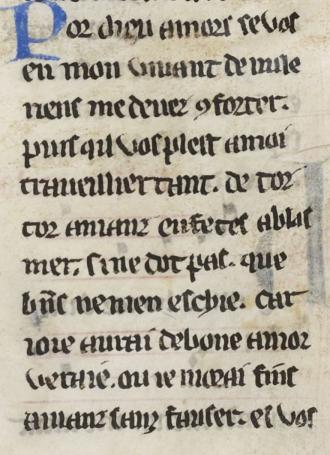 Por dieu amors se vos
en mon viuant de mile
riens me deuez ꝯforter.
puis qil vos plest a moi
traueillier tant. de tor
tor amanz en fetes a blas
mer. si ne dot pas. que
bn̄s ne men eschie. car
ioie aurai de bone amor
veraie. ou ie morai fins
amanz sanz fauser. et vos